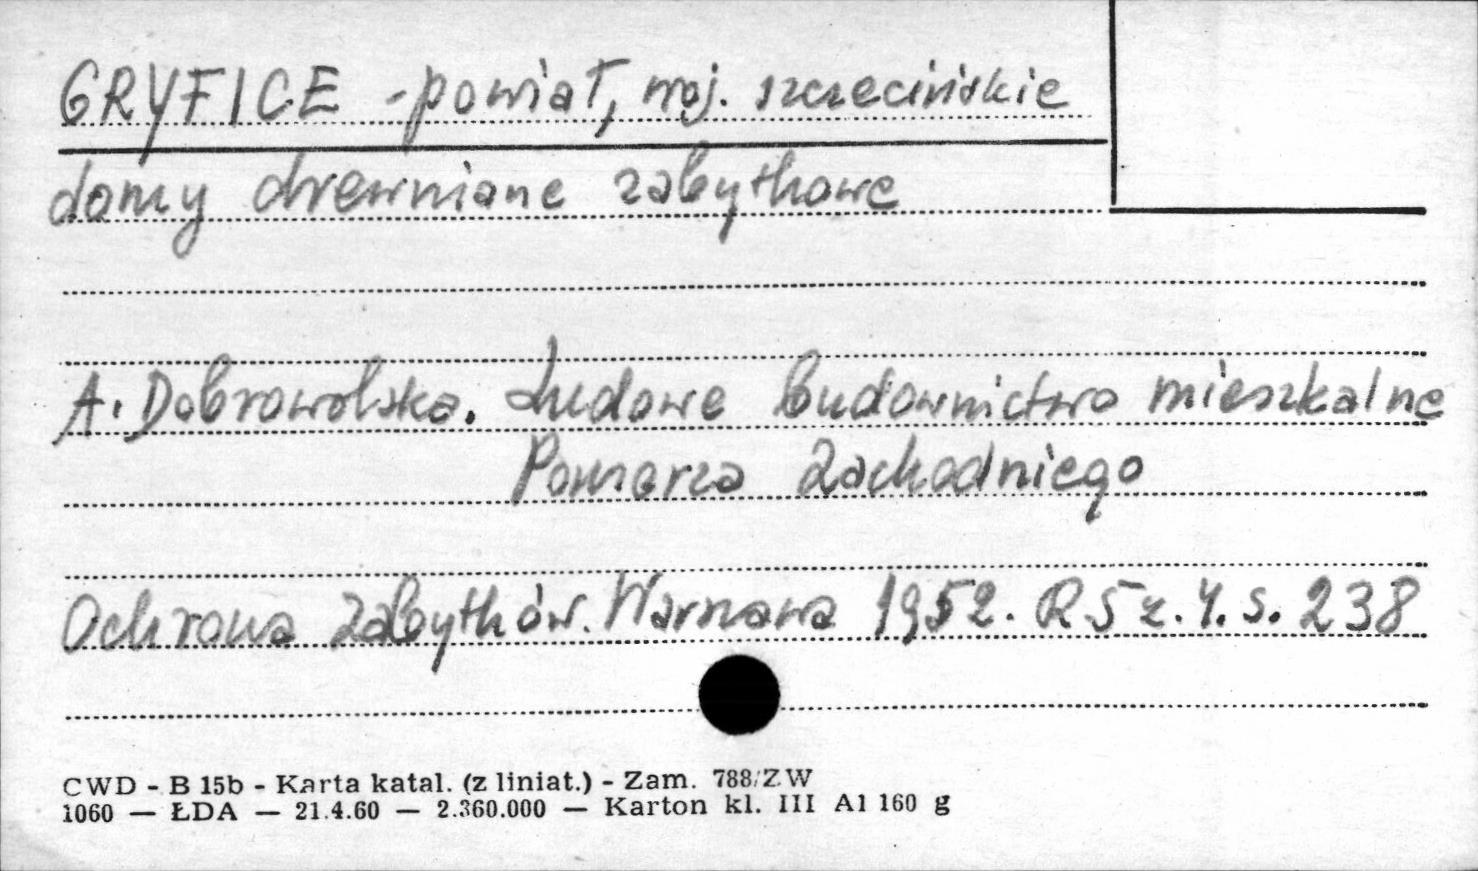 GRYFICE - powiat, woj. szczecińskie
domy drewniane zabytkowe
A. Dobrowolska. Ludowe budownictwo mieszkalne
Pomorza Zachodniego
Ochrona Zabytków. Warszawa 1952. R 5 z. 4. s. 238
CWD - B 15b - Karta katal. (z liniat.) - Zam. 788/ZW
1060 — ŁDA — 21.4.60 — 2.360.000 — Karton kl. III A1 160 g